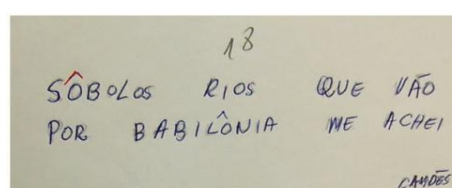 18
SÔBOLOS RIOS QUE VÃO
POR BABILÔNIA ME ACHEI
CAMÕES